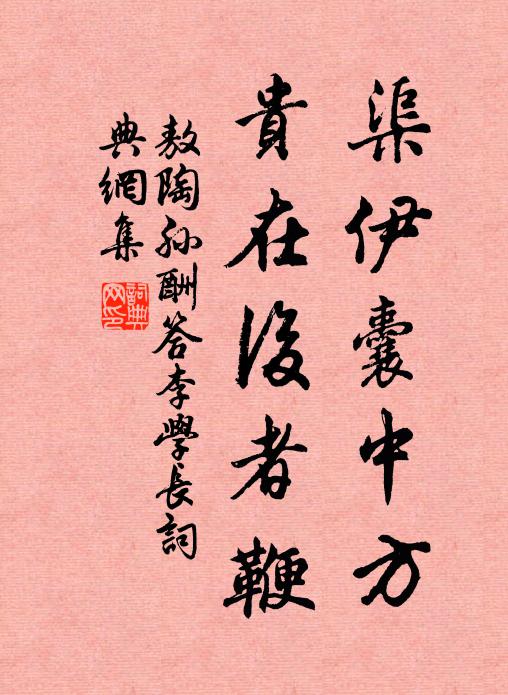 渠伊囊中方
貴在後者鞭
敖陶孙酬答李學長詞
典網集
詞典
网印